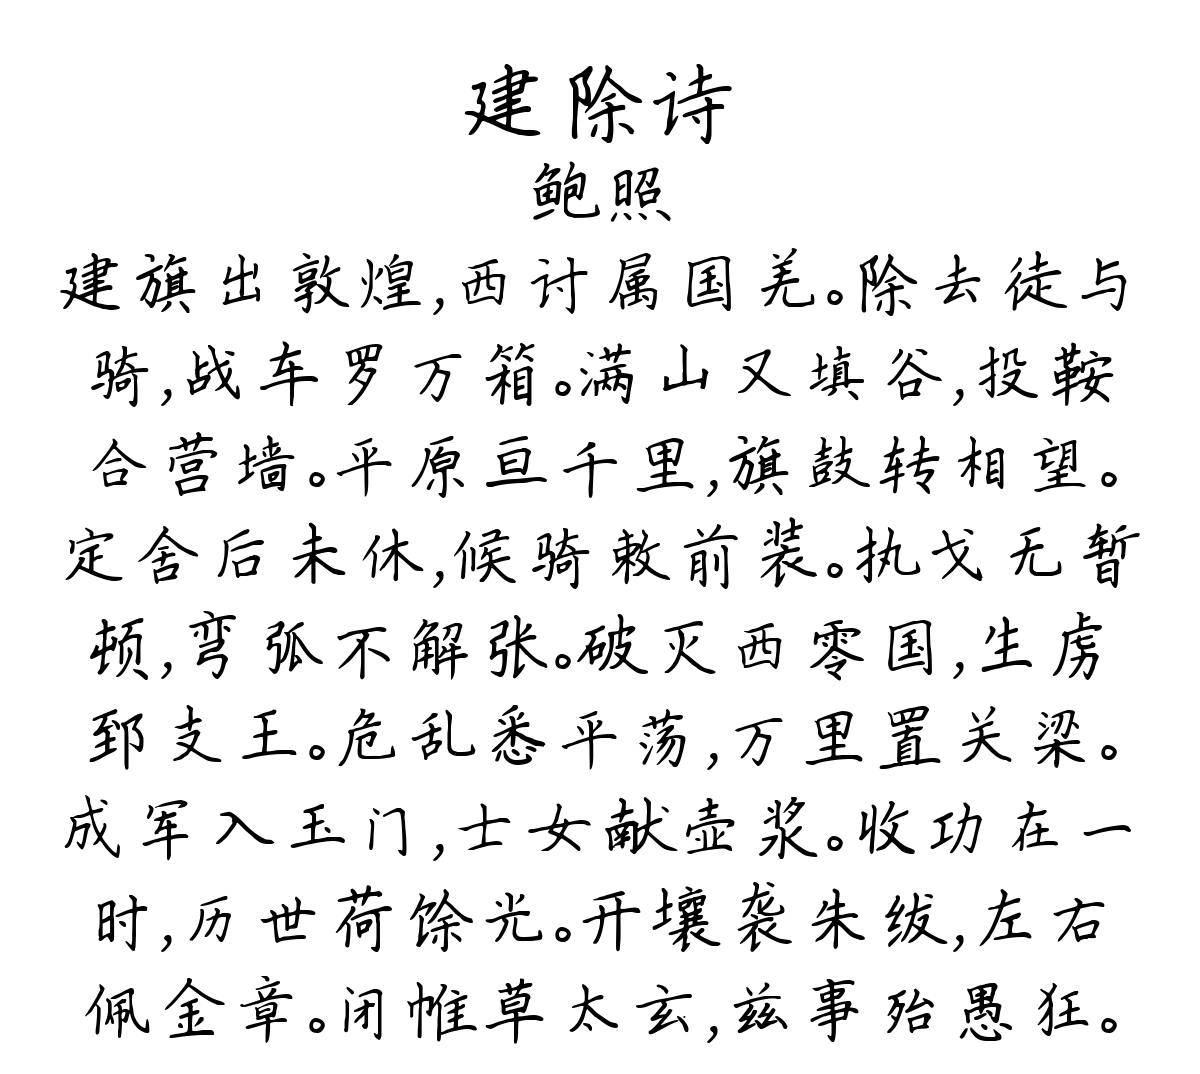 建除诗
鲍照
建旗出敦煌,西讨属国羌。除去徒与
骑,战车罗万箱。满山又填谷,投鞍
合营墙。平原亘千里,旗鼓转相望。
定舍后未休,候骑敕前装。执戈无暂
顿,弯弧不解张。破灭西零国,生虏
郅支王。危乱悉平荡,万里置关梁。
成军入玉门,士女献壶浆。收功在一
时,历世荷馀光。开壤袭朱绂,左右
佩金章。闭帷草太玄,兹事殆愚狂。